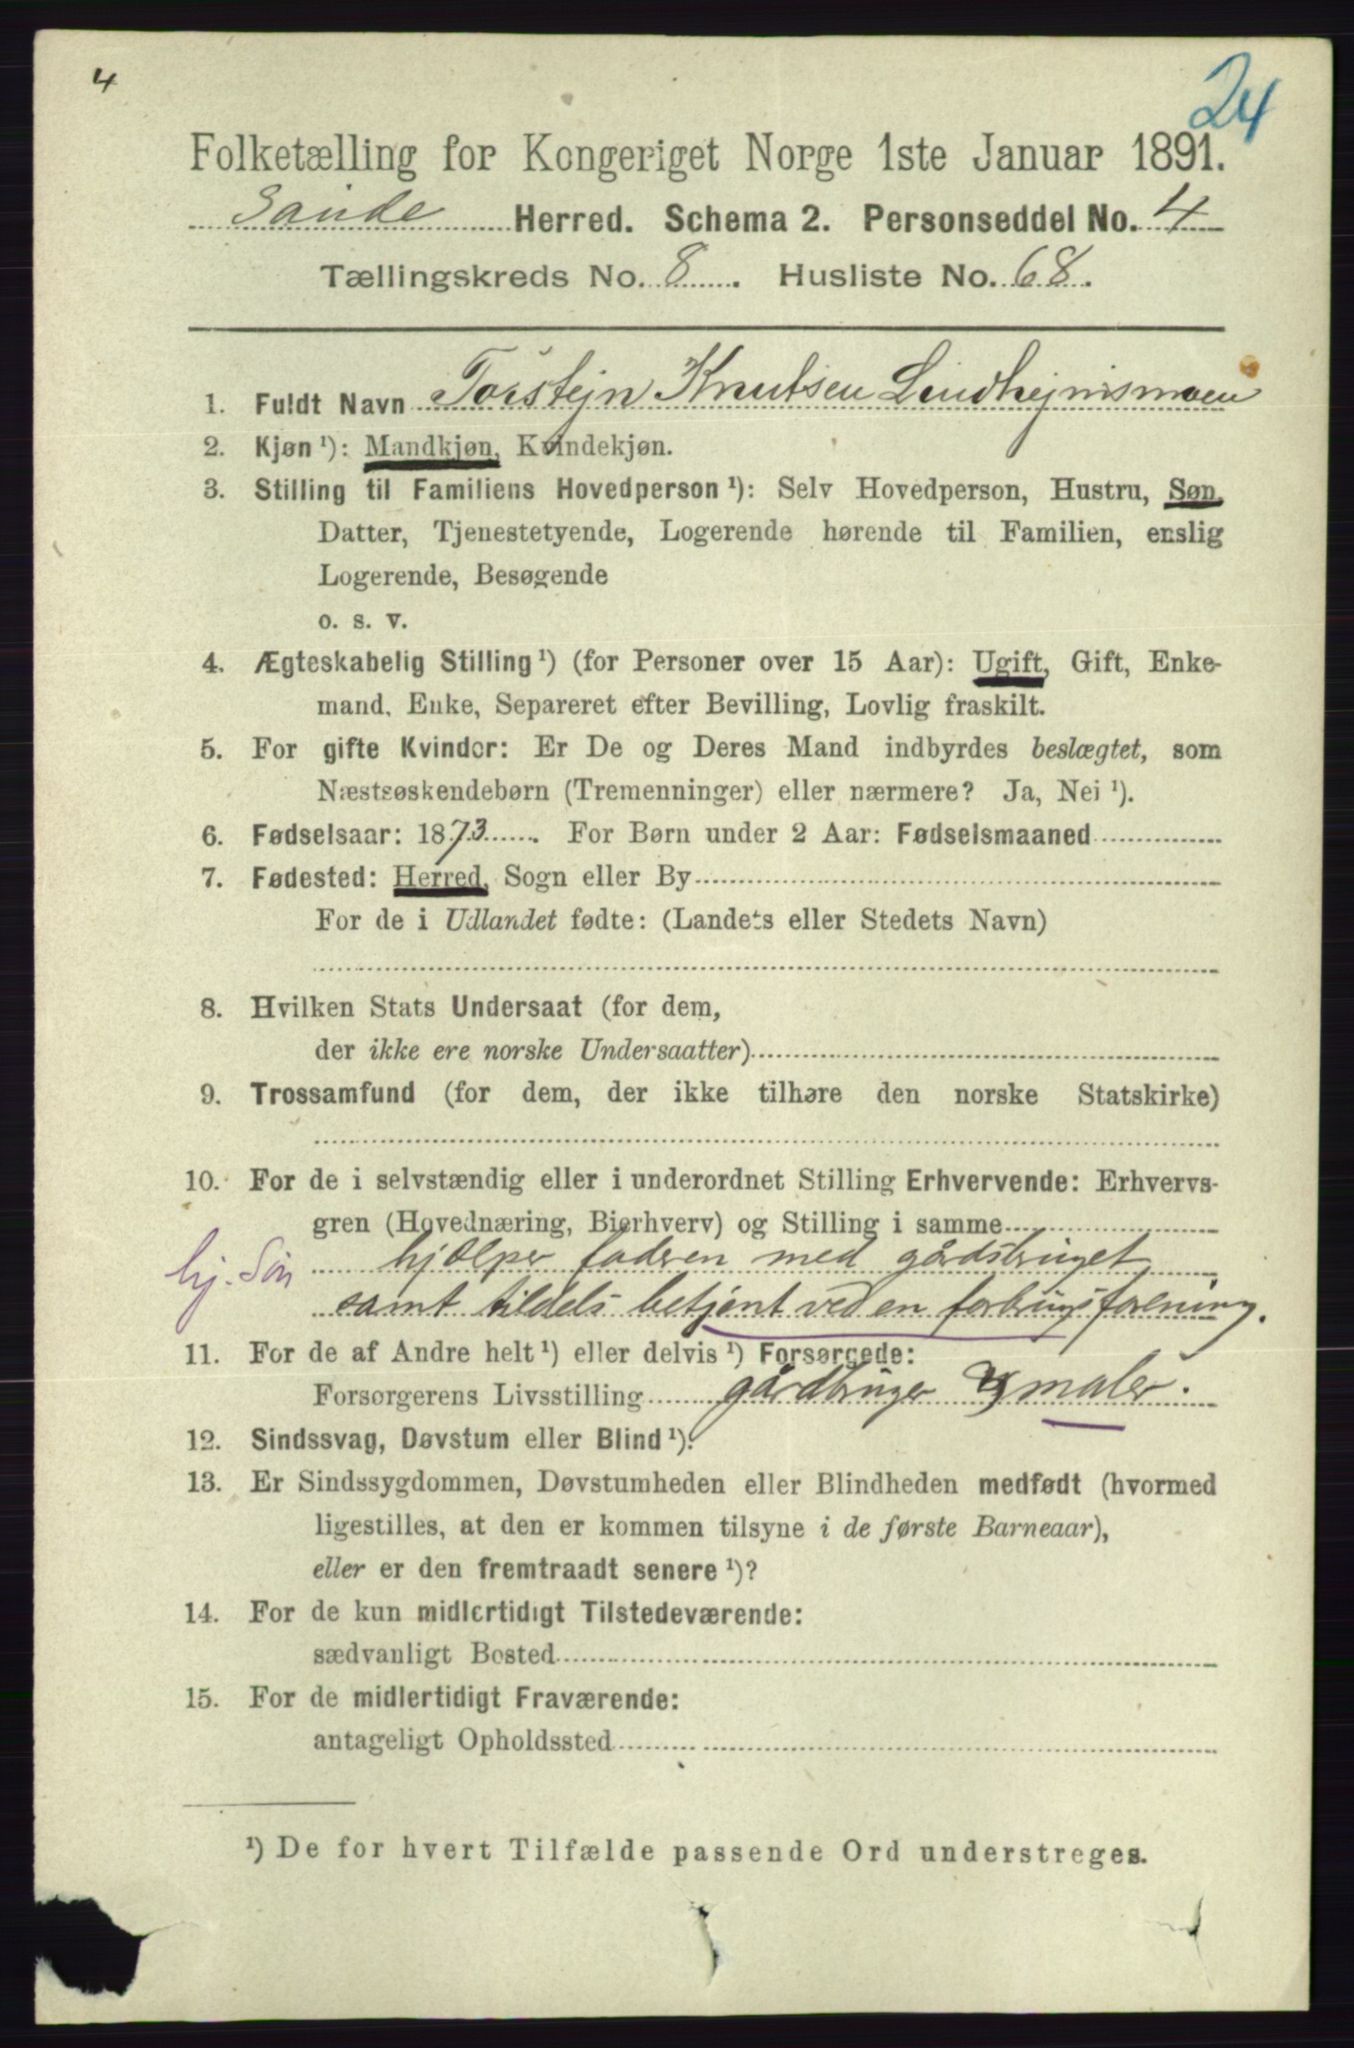 4
24
Folketælling for Kongeriget Norge 1ste Januar 1891.
Sande Herred. Schema 2. Personseddel No. 4
Tællingskreds No. 8. Husliste No. 68.
1. Fuldt Navn Torstejn Knutsen Lindhejmsmoen
2. Kjøn ¹): Mandkjøn, Kvindekjøn.
3. Stilling til Familiens Hovedperson ¹): Selv Hovedperson, Hustru, Søn,
Datter, Tjenestetyende, Logerende hørende til Familien, enslig
Logerende, Besøgende
o. s. v.
4. Ægteskabelig Stilling ¹) (for Personer over 15 Aar): Ugift, Gift, Enke-
mand, Enke, Separeret efter Bevilling, Lovlig fraskilt.
5. For gifte Kvinder: Er De og Deres Mand indbyrdes beslægtet, som
Næstsøskendebørn (Tremenninger) eller nærmere? Ja, Nei ¹).
6. Fødselsaar: 1873. For Børn under 2 Aar: Fødselsmaaned
7. Fødested: Herred, Sogn eller By
For de i Udlandet fødte: (Landets eller Stedets Navn)
8. Hvilken Stats Undersaat (for dem,
der ikke ere norske Undersaatter)
9. Trossamfund (for dem, der ikke tilhøre den norske Statskirke)
10. For de i selvstændig eller i underordnet Stilling Erhvervende: Erhvervs-
gren (Hovednæring, Bierhverv) og Stilling i samme
hj. Søn hjælper faderen med gårdsbruget
samt tildels betjent ved en forbrugsforening.
11. For de af Andre helt ¹) eller delvis ¹) Forsørgede:
Forsørgerens Livsstilling gårdbruger og maler.
12. Sindssvag, Døvstum eller Blind ¹).
13. Er Sindssygdommen, Døvstumheden eller Blindheden medfødt (hvormed
ligestilles, at den er kommen tilsyne i de første Barneaar),
eller er den fremtraadt senere ¹)?
14. For de kun midlertidigt Tilstedeværende:
sædvanligt Bosted
15. For de midlertidigt Fraværende:
antageligt Opholdssted
¹) De for hvert Tilfælde passende Ord understreges.